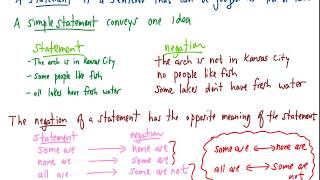 A statement is a sentence that can be judged
A simple statement conveys one idea
statement negation
- The arch is in Kansas City The arch is not in Kansas City
- Some people like fish no people like fish
- all lakes have fresh water Some lakes don't have fresh water
The negation of a statement has the opposite meaning of the statement
statement negation
some are none are
none are some are
all are some are not
some are none are
all are some are not